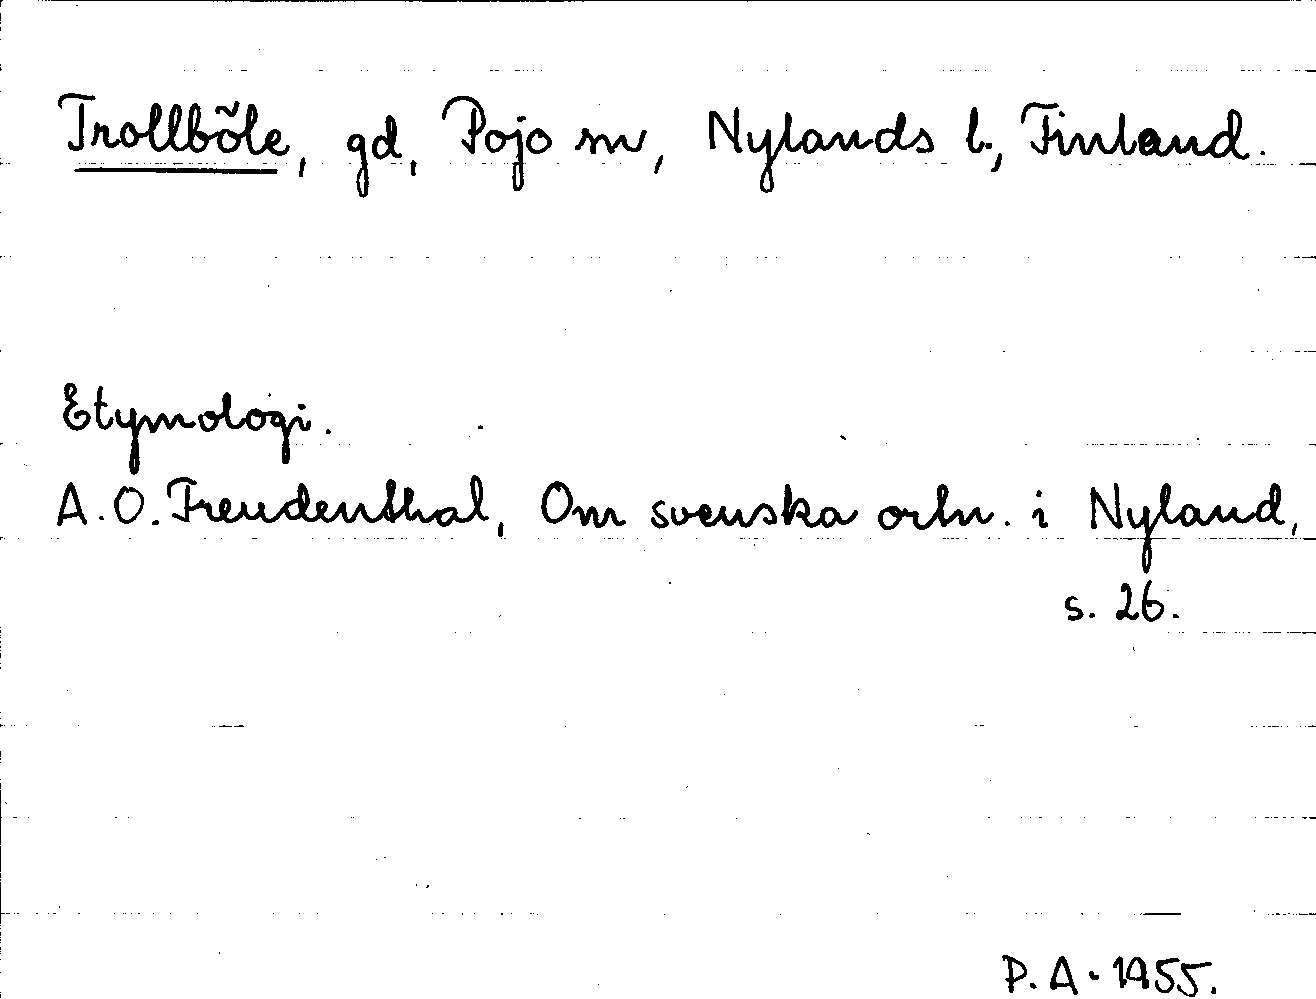 Trollböle, gd, Pojo sn, Nylands l., Finland.
Etymologi.
A. O. Freudenthal, Om svenska ortn. i Nyland,
s. 26.
P. A. 1955.